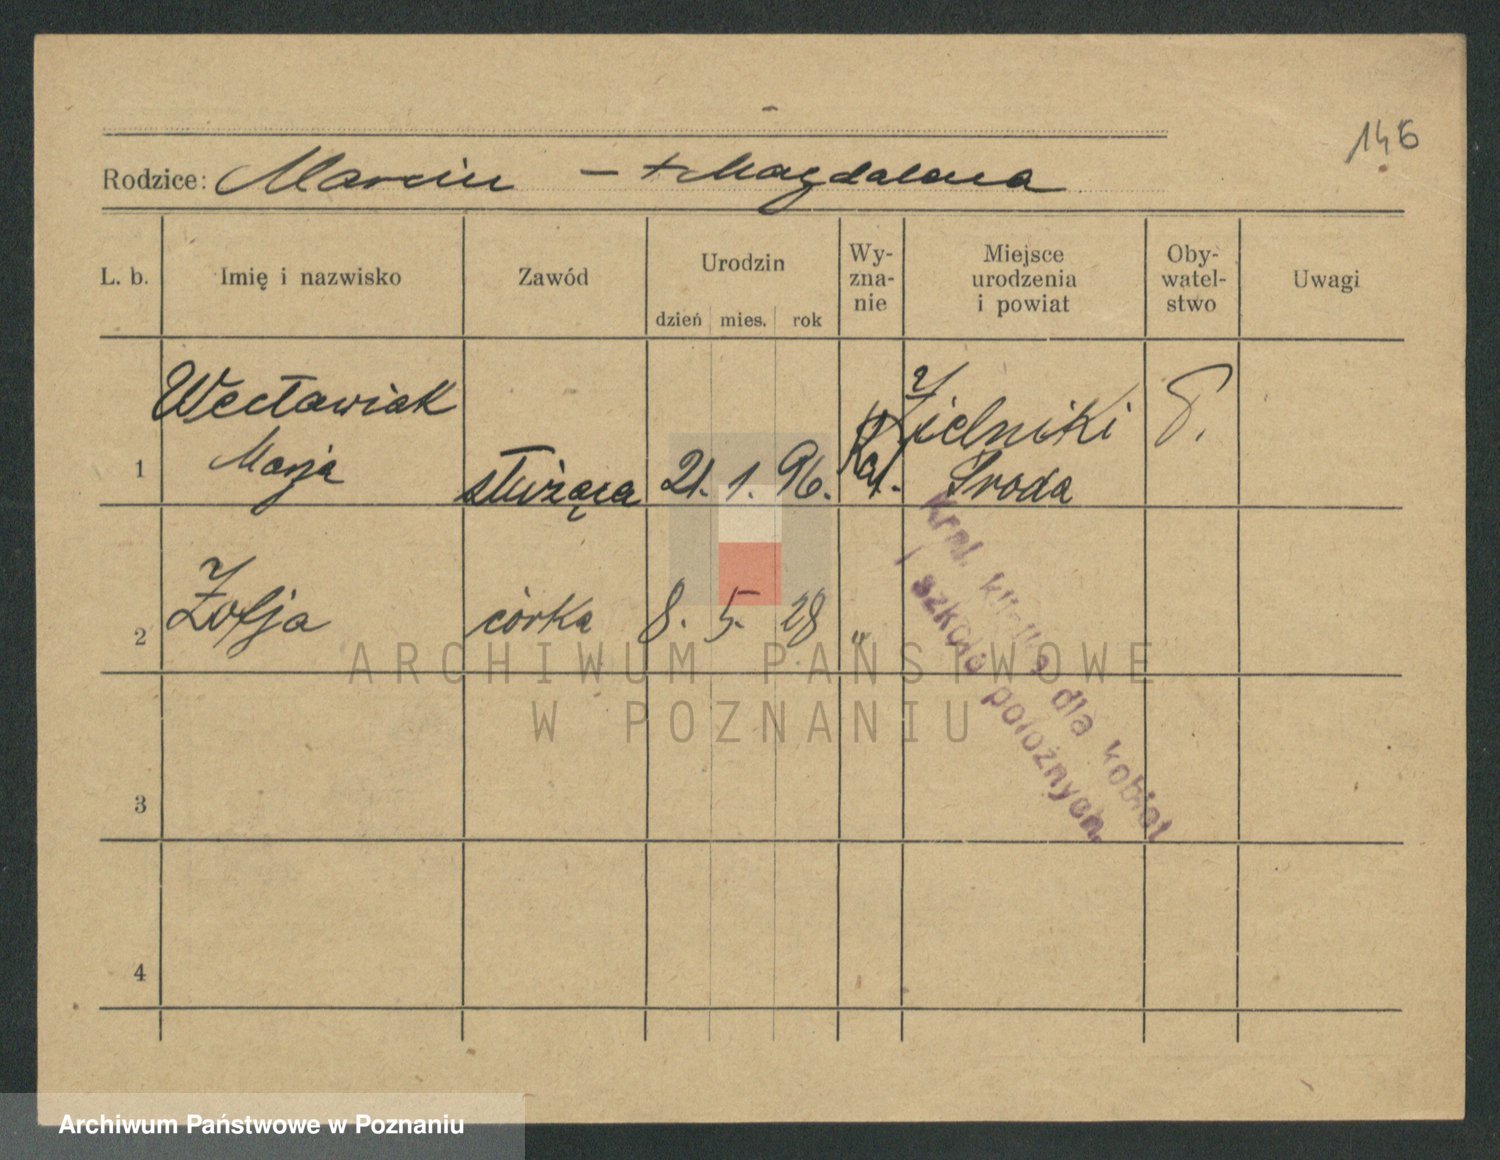 146
Rodzice: Marcin - + Magdalena
L. b. Imię i nazwisko Zawód Urodzin dzień mies. rok Wy-zna-nie Miejsce urodzenia i powiat Oby-watel-stwo Uwagi
Wecławiak Zielniki P.
1 Marja służąca 21. 1. 96. Kat. Środa
2 Zofja córka 8. 5. 28 "
Kraj. klinika dla kobiet
i szkoła położnych.
3
4
ARCHIWUM PAŃSTWOWE
W POZNANIU
Archiwum Państwowe w Poznaniu